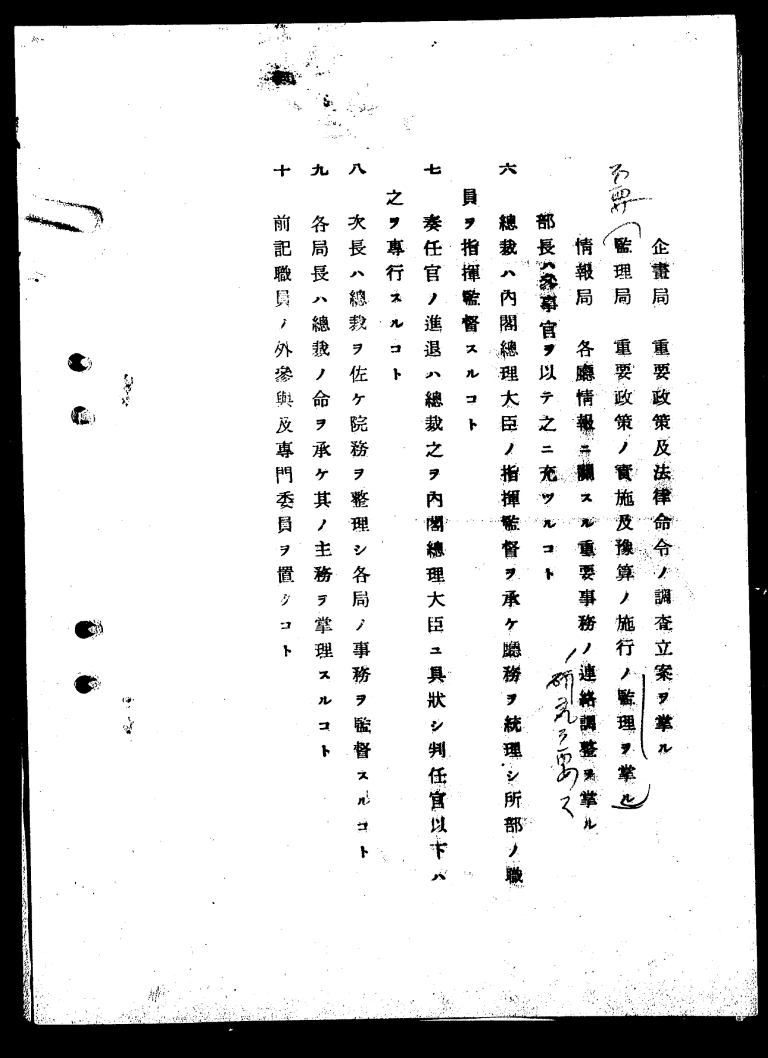 企畫局　重要政策及法律命令ノ調査立案ヲ掌ル
不要
監理局　重要政策ノ實施及豫算ノ施行ノ監理ヲ掌ル
情報局　各廳情報ニ關スル重要事務ノ連絡調整ヲ掌ル
ノ研究ヲ要ス
部長ハ參事官ヲ以テ之ニ充ツルコト
六　總裁ハ內閣總理大臣ノ指揮監督ヲ承ケ廳務ヲ統理シ所部ノ職
員ヲ指揮監督スルコト
七　奏任官ノ進退ハ總裁之ヲ內閣總理大臣ニ具狀シ判任官以下ハ
之ヲ專行スルコト
八　次長ハ總裁ヲ佐ケ院務ヲ整理シ各局ノ事務ヲ監督スルコト
九　各局長ハ總裁ノ命ヲ承ケ其ノ主務ヲ掌理スルコト
十　前記職員ノ外參與及專門委員ヲ置クコト